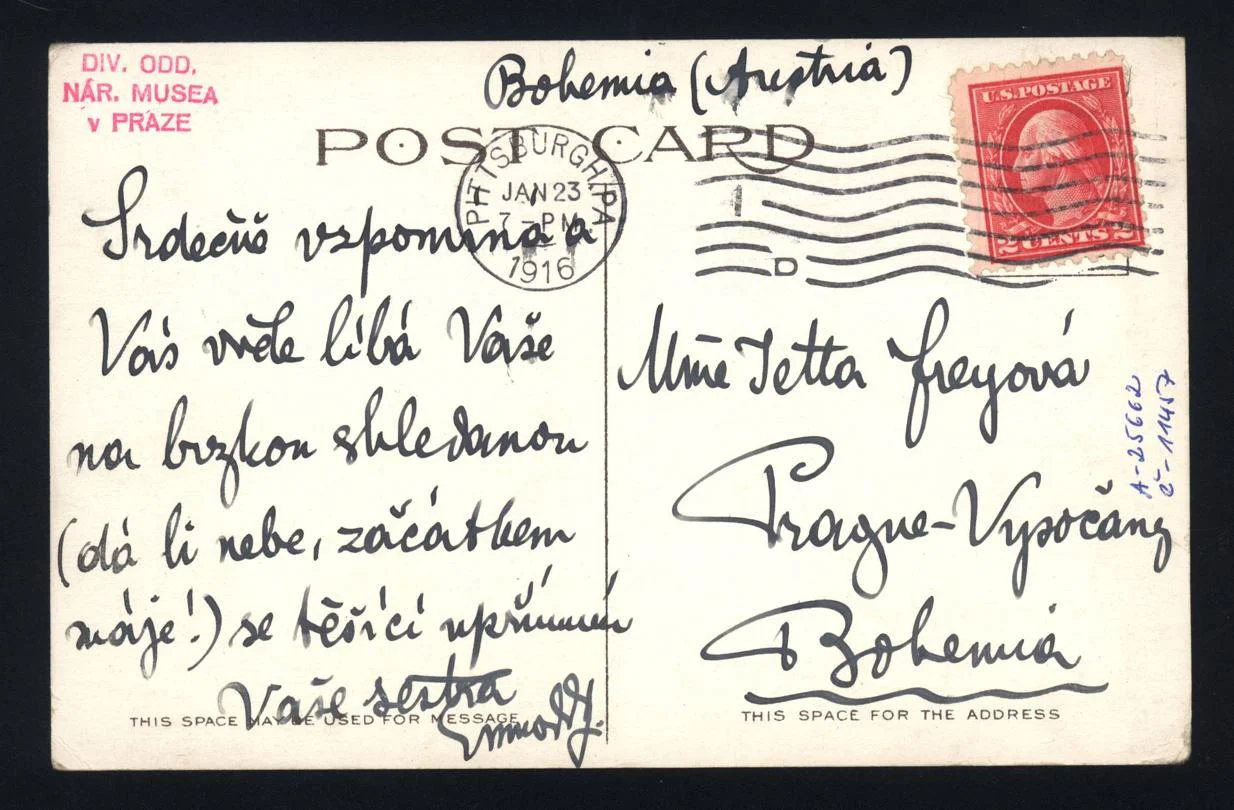 DIV. ODD.
NÁR. MUSEA
v PRAZE
Bohemia (Austria)
POST CARD
PITTSBURGH, PA
JAN 23
7 - PM
1916
D
U.S. POSTAGE
2 CENTS 2
Srdečně vzpomíná a
Vás vřele líbá Vaše
na brzkou shledanou
(dá li nebe, začátkem
máje!) se těšící upřímná
Vaše sestra
Emmy D.
Mme Jetta Freyová
Prague-Vysočany
Bohemia
A-25662
č-11457
THIS SPACE MAY BE USED FOR MESSAGE
THIS SPACE FOR THE ADDRESS